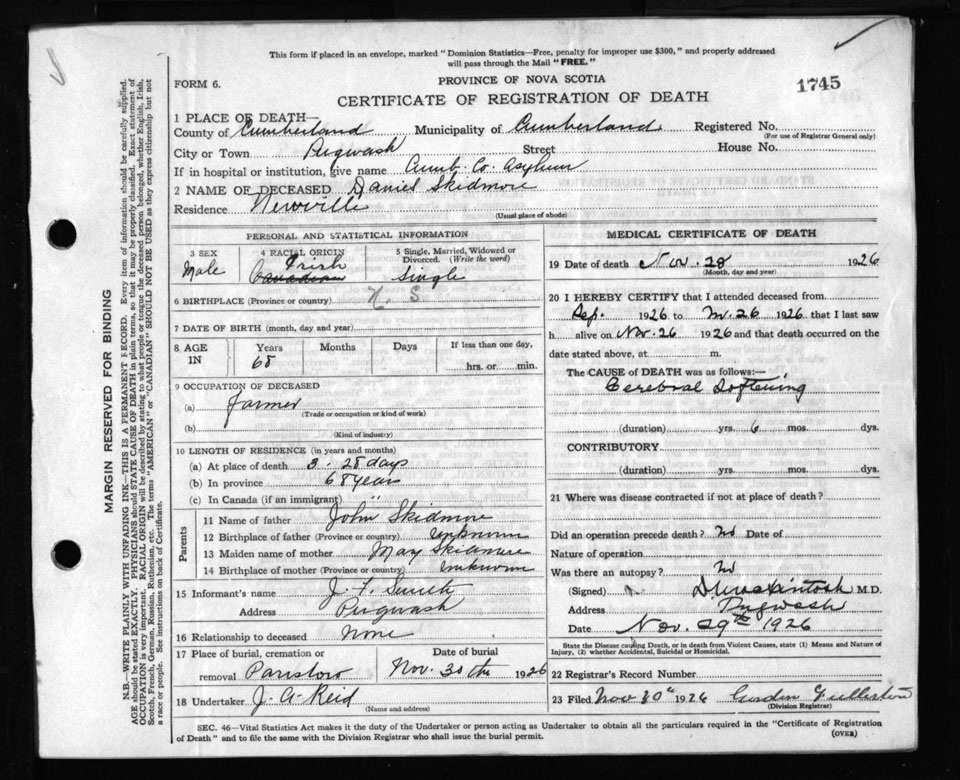 This form if placed in an envelope, marked "Dominion Statistics—Free, penalty for improper use $300," and properly addressed
will pass through the Mail "FREE."
FORM 6.
PROVINCE OF NOVA SCOTIA
1745
CERTIFICATE OF REGISTRATION OF DEATH
1 PLACE OF DEATH—
County of Cumberland Municipality of Cumberland Registered No.
(For use of Registrar General only)
City or Town Pugwash Street House No.
If in hospital or institution, give name Cumb. Co. Asylum
2 NAME OF DECEASED Daniel Skidmore
Residence Newville
(Usual place of abode)
PERSONAL AND STATISTICAL INFORMATION
3 SEX
Male
4 RACIAL ORIGIN
Irish
Canadian
5 Single, Married, Widowed or Divorced. (Write the word)
Single
6 BIRTHPLACE (Province or country) N. S
7 DATE OF BIRTH (month, day and year)
8 AGE IN
Years
68
Months
Days
If less than one day,
hrs. or min.
9 OCCUPATION OF DECEASED
(a) farmer
(Trade or occupation or kind of work)
(b)
(Kind of industry)
10 LENGTH OF RESIDENCE (in years and months)
(a) At place of death 3 - 28 days
(b) In province 68 years
(c) In Canada (if an immigrant) "
Parents
11 Name of father John Skidmore
12 Birthplace of father (Province or country) unknown
13 Maiden name of mother May Skidmore
14 Birthplace of mother (Province or country) unknown
15 Informant's name J. F. Smith
Address Pugwash
16 Relationship to deceased None
17 Place of burial, cremation or
removal
Date of burial
Nov. 30th 1926
18 Undertaker J. A. Reid
(Name and address)
MEDICAL CERTIFICATE OF DEATH
19 Date of death Nov. 28 1926
(Month, day and year)
20 I HEREBY CERTIFY that I attended deceased from
Sep. 1926 to Nov. 26 1926 that I last saw
h alive on Nov. 26 1926 and that death occurred on the
date stated above, at m.
The CAUSE of DEATH was as follows:—
Cerebral Softening
(duration) yrs. 6 mos. dys.
CONTRIBUTORY
(duration) yrs. mos. dys.
21 Where was disease contracted if not at place of death?
Did an operation precede death? No Date of
Nature of operation
Was there an autopsy? No
(Signed) M.D.
Address Pugwash
Date Nov. 29th 1926
State the Disease causing Death, or in death from Violent Causes, state (1) Means and Nature of
Injury, (2) whether Accidental, Suicidal or Homicidal.
22 Registrar's Record Number
23 Filed Nov 30th 1926 Gordon
(Division Registrar)
SEC. 46—Vital Statistics Act makes it the duty of the Undertaker or person acting as Undertaker to obtain all the particulars required in the "Certificate of Registration
of Death" and to file the same with the Division Registrar who shall issue the burial permit.
(OVER)
MARGIN RESERVED FOR BINDING
N.B.—WRITE PLAINLY WITH UNFADING INK—THIS IS A PERMANENT RECORD. Every item of information should be carefully supplied.
AGE should be stated EXACTLY. PHYSICIANS should STATE CAUSE OF DEATH in plain terms, so that it may be properly classified. Exact statement of
OCCUPATION is very important. RACIAL ORIGIN will be described by stating to what people or tongue the deceased person belonged, whether English, Irish,
Scotch, French, German, Russian, Ruthenian, etc. The terms "AMERICAN" or "CANADIAN" SHOULD NOT BE USED as they express citizenship but not
a race or people. See instructions on back of Certificate.